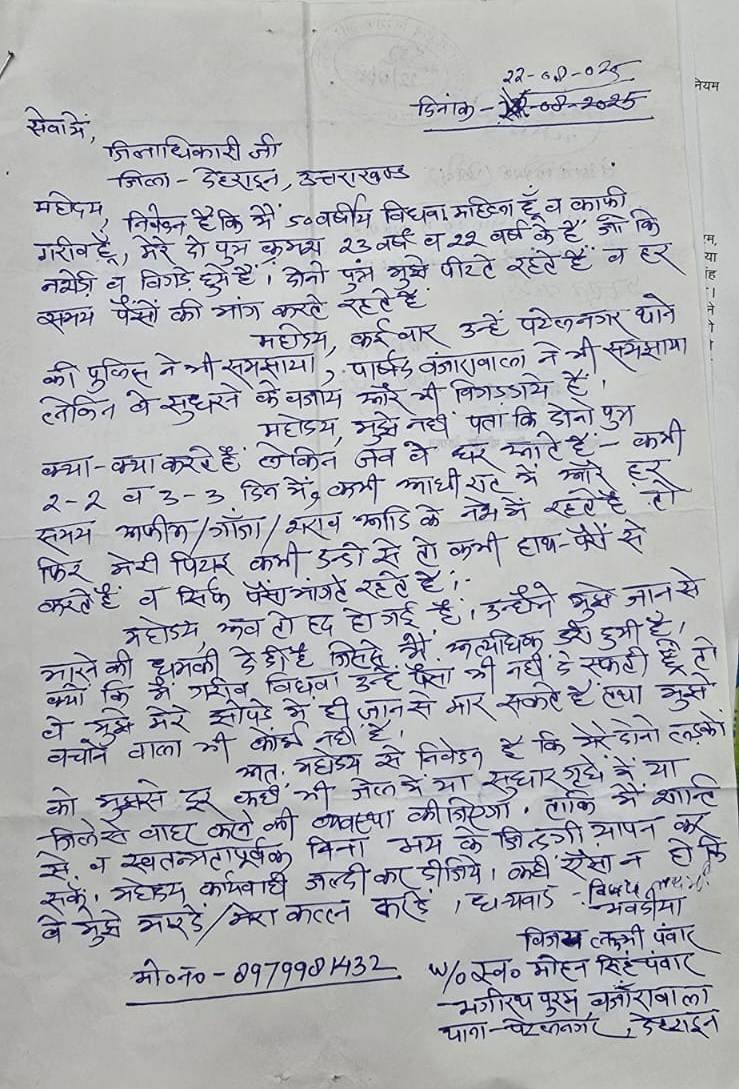 22-08-025
दिनांक - 22-08-2025
सेवा में,
जिलाधिकारी जी
जिला - देहरादून, उत्तराखण्ड
महोदय, निवेदन है कि मैं 50 वर्षीय विधवा महिला हूँ व काफी
गरीब हूँ, मेरे दो पुत्र क्रमश 23 वर्ष व 22 वर्ष के हैं जो कि
नशेड़ी व बिगडे हुये हैं। दोनो पुत्र मुझे पीटते रहते हैं व हर
समय पैसों की मांग करते रहते हैं
महोदय, कई बार उन्हें पटेलनगर थाने
की पुलिस ने भी समझाया, पार्षद बंजारावाला ने भी समझाया
लेकिन वे सुधरने के बजाय और भी बिगड गये हैं।
महोदय, मुझे नहीं पता कि दोनो पुत्र
क्या-क्या करते हैं लेकिन जब वे घर आते हैं - कभी
2-2 व 3-3 दिन में, कभी आधी रात में और हर
समय अफीम/गाँजा/शराब आदि के नशे में रहते हैं तो
फिर मेरी पिटाई कभी डन्डो से तो कभी हाथ-पैरों से
करते हैं व सिर्फ पैसा मांगते रहते हैं।
महोदय, अब तो हद हो गई है। उन्होंने मुझे जान से
मारने की धमकी दे दी है जिससे मैं अत्यधिक डरी हुयी हूँ।
क्यों कि मैं गरीब विधवा उन्हें पैसा भी नहीं दे सकती हूँ तो
वे मुझे मेरे झोपडे में ही जान से मार सकते हैं तथा मुझे
बचाने वाला भी कोई नही है,
अत: महोदय से निवेदन है कि मेरे दोनो लडकों
को मुझसे दूर कहीं भी जेल में या सुधार गृह में या
जिले से बाहर करने की व्यवस्था कीजिएगा। ताकि मैं शान्ति
से व स्वतन्त्रतापूर्वक बिना भय के जिन्दगी यापन कर
सकूं। महोदय कार्यवाही जल्दी कर दीजिये। कहीं ऐसा न हो कि
वे मुझे मार दें/मेरा कत्ल कर दें। धन्यवाद
भवदीया
विजय लक्ष्मी पंवार
मो0 न0 - 8979981432
W/o स्व० मोहन सिंह पंवार
भगीरथ पुरम, बंजारावाला
थाना - पटेलनगर, देहरादून
नियम